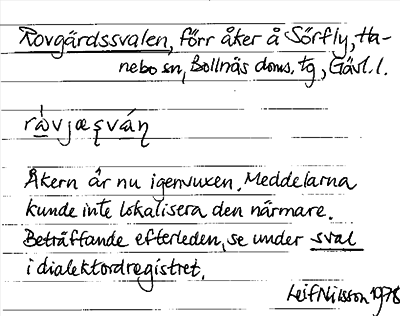 Rovgärdssvalen, förr åker å Sörfly, Ha-
nebo sn, Bollnäs doms. tg, Gävl. l.
Åkern är nu igenvuxen. Meddelarna
kunde inte lokalisera den närmare.
Beträffande efterleden, se under sval
i dialektordregistret.
Leif Nilsson 1978